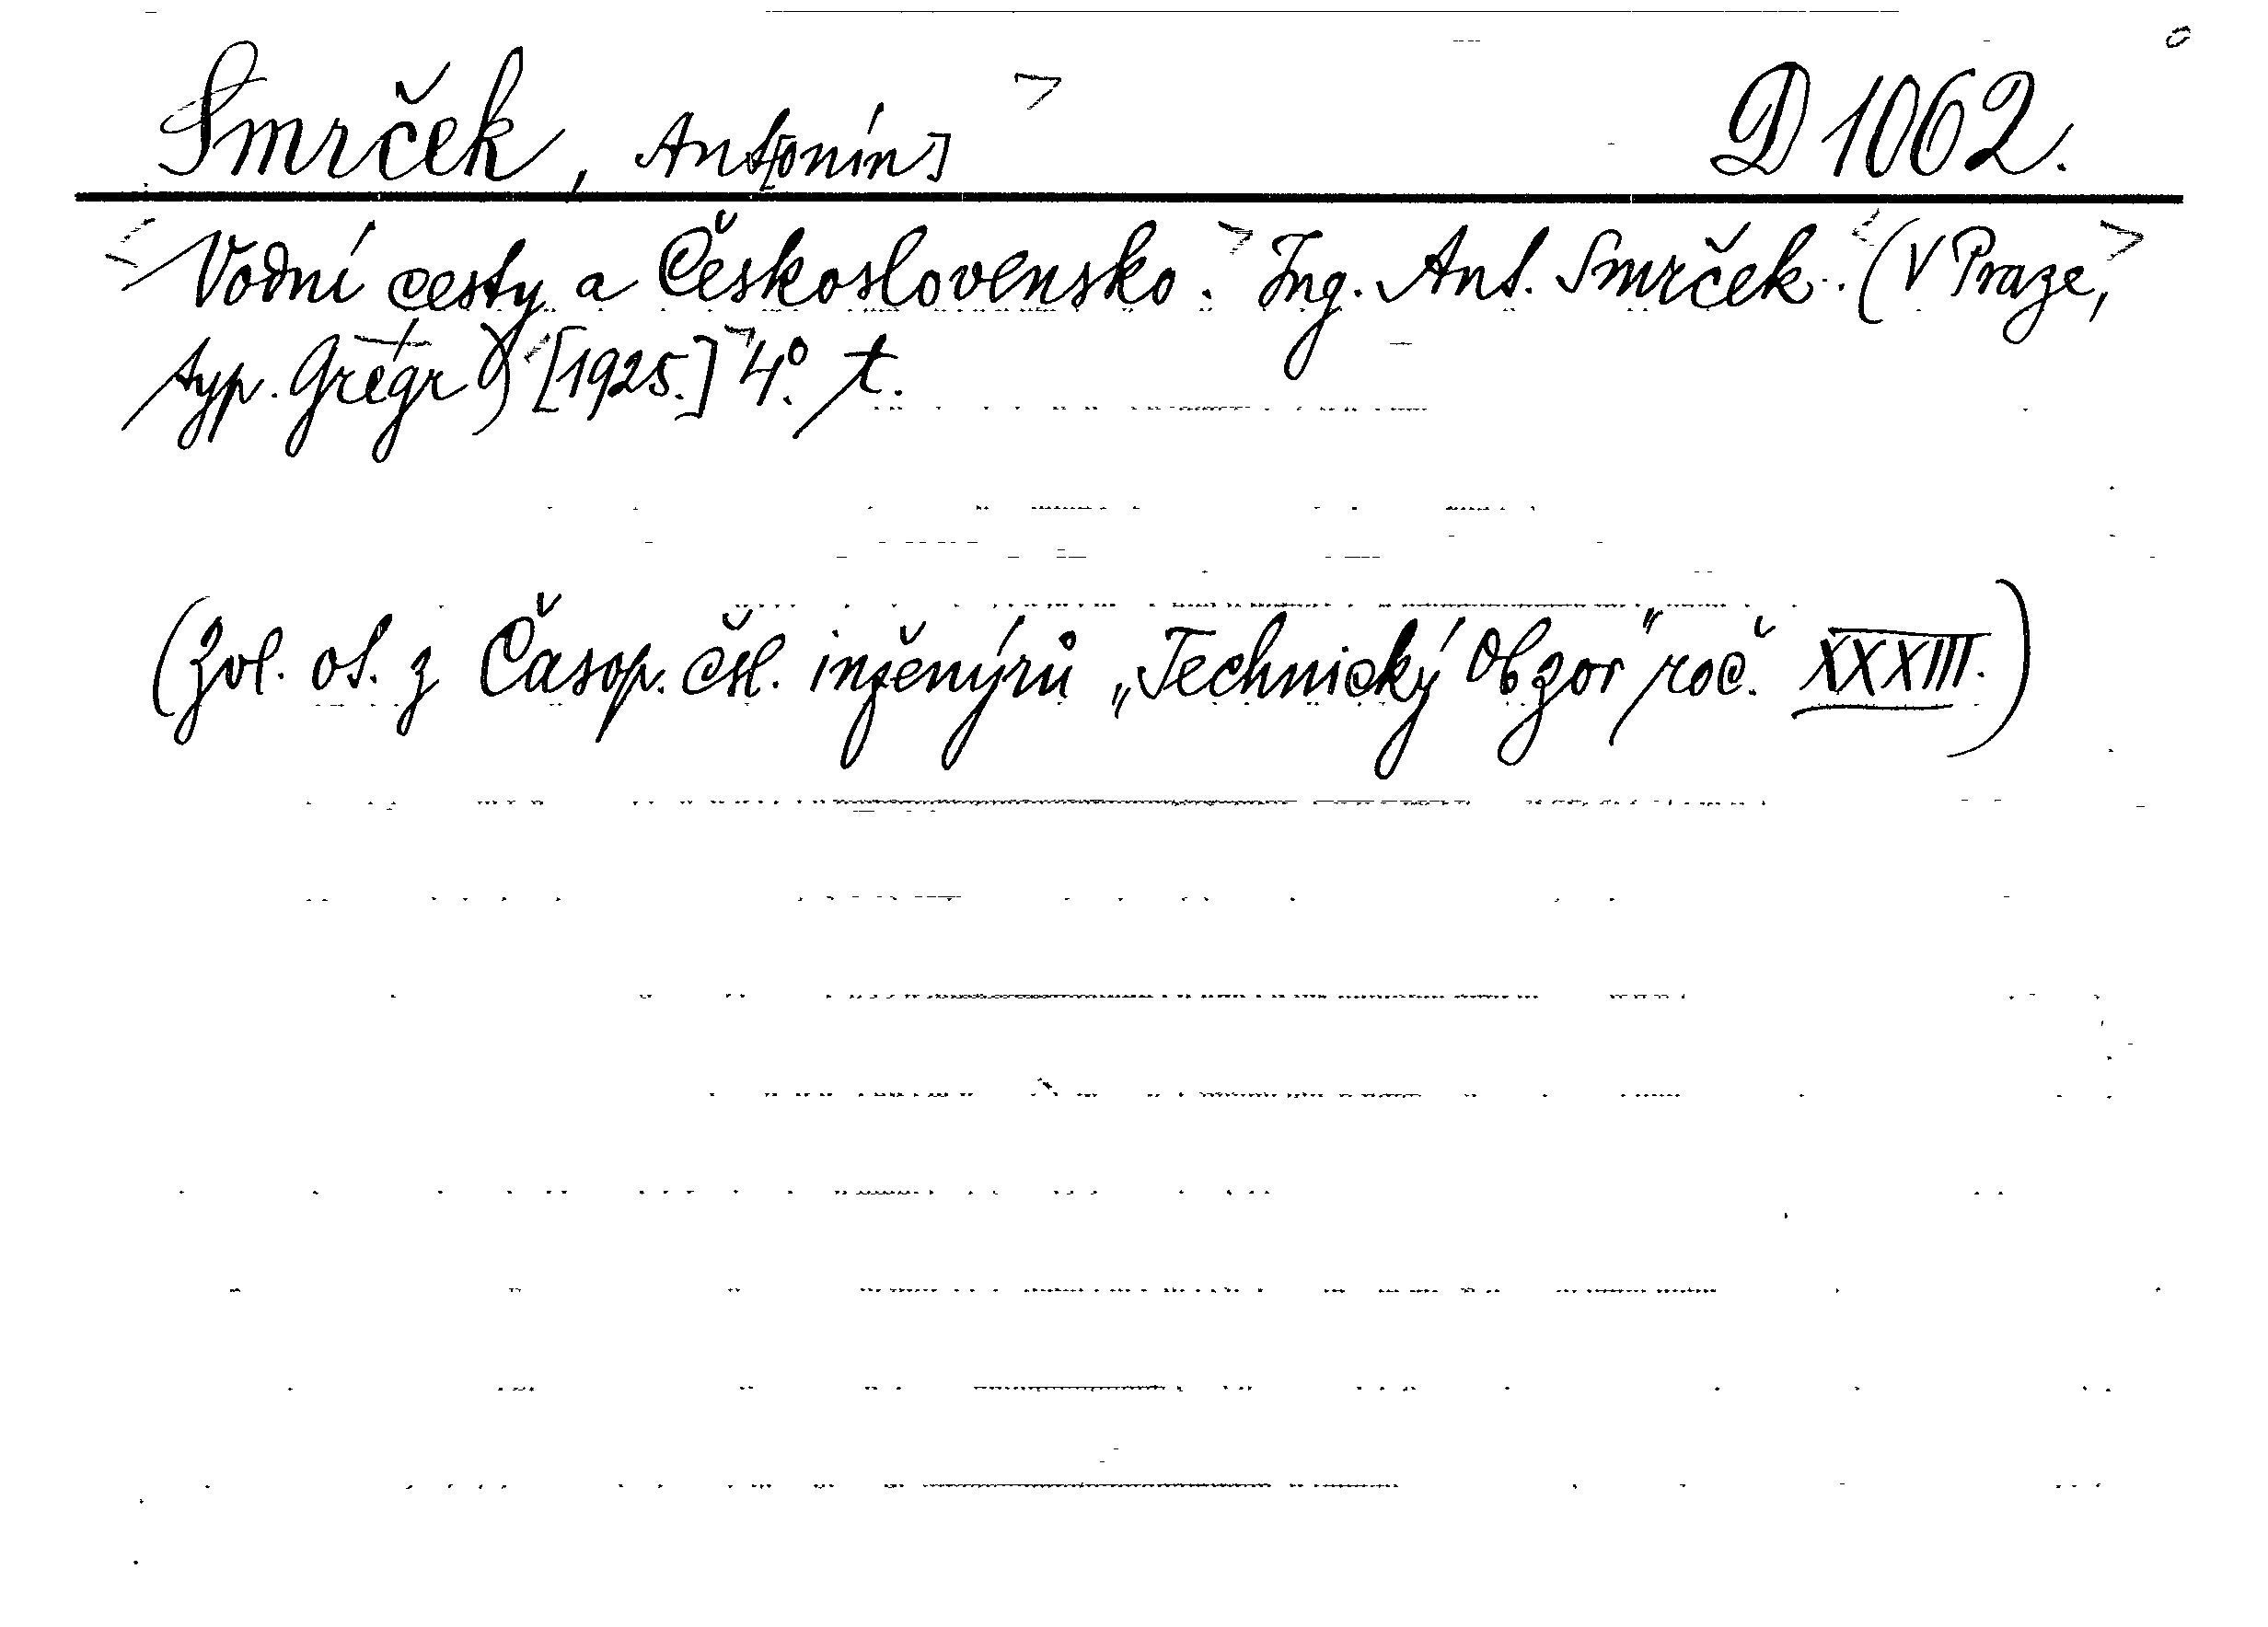 Smrček, Ant[onín] D 1062.
Vodní cesty a Československo. Ing. Ant. Smrček. (V Praze,
typ. Grégr) [1925.] 4°. t.
(Zvl. ot. z Časop. čsl. inženýrů „Technický Obzor" roč. XXXIII.)